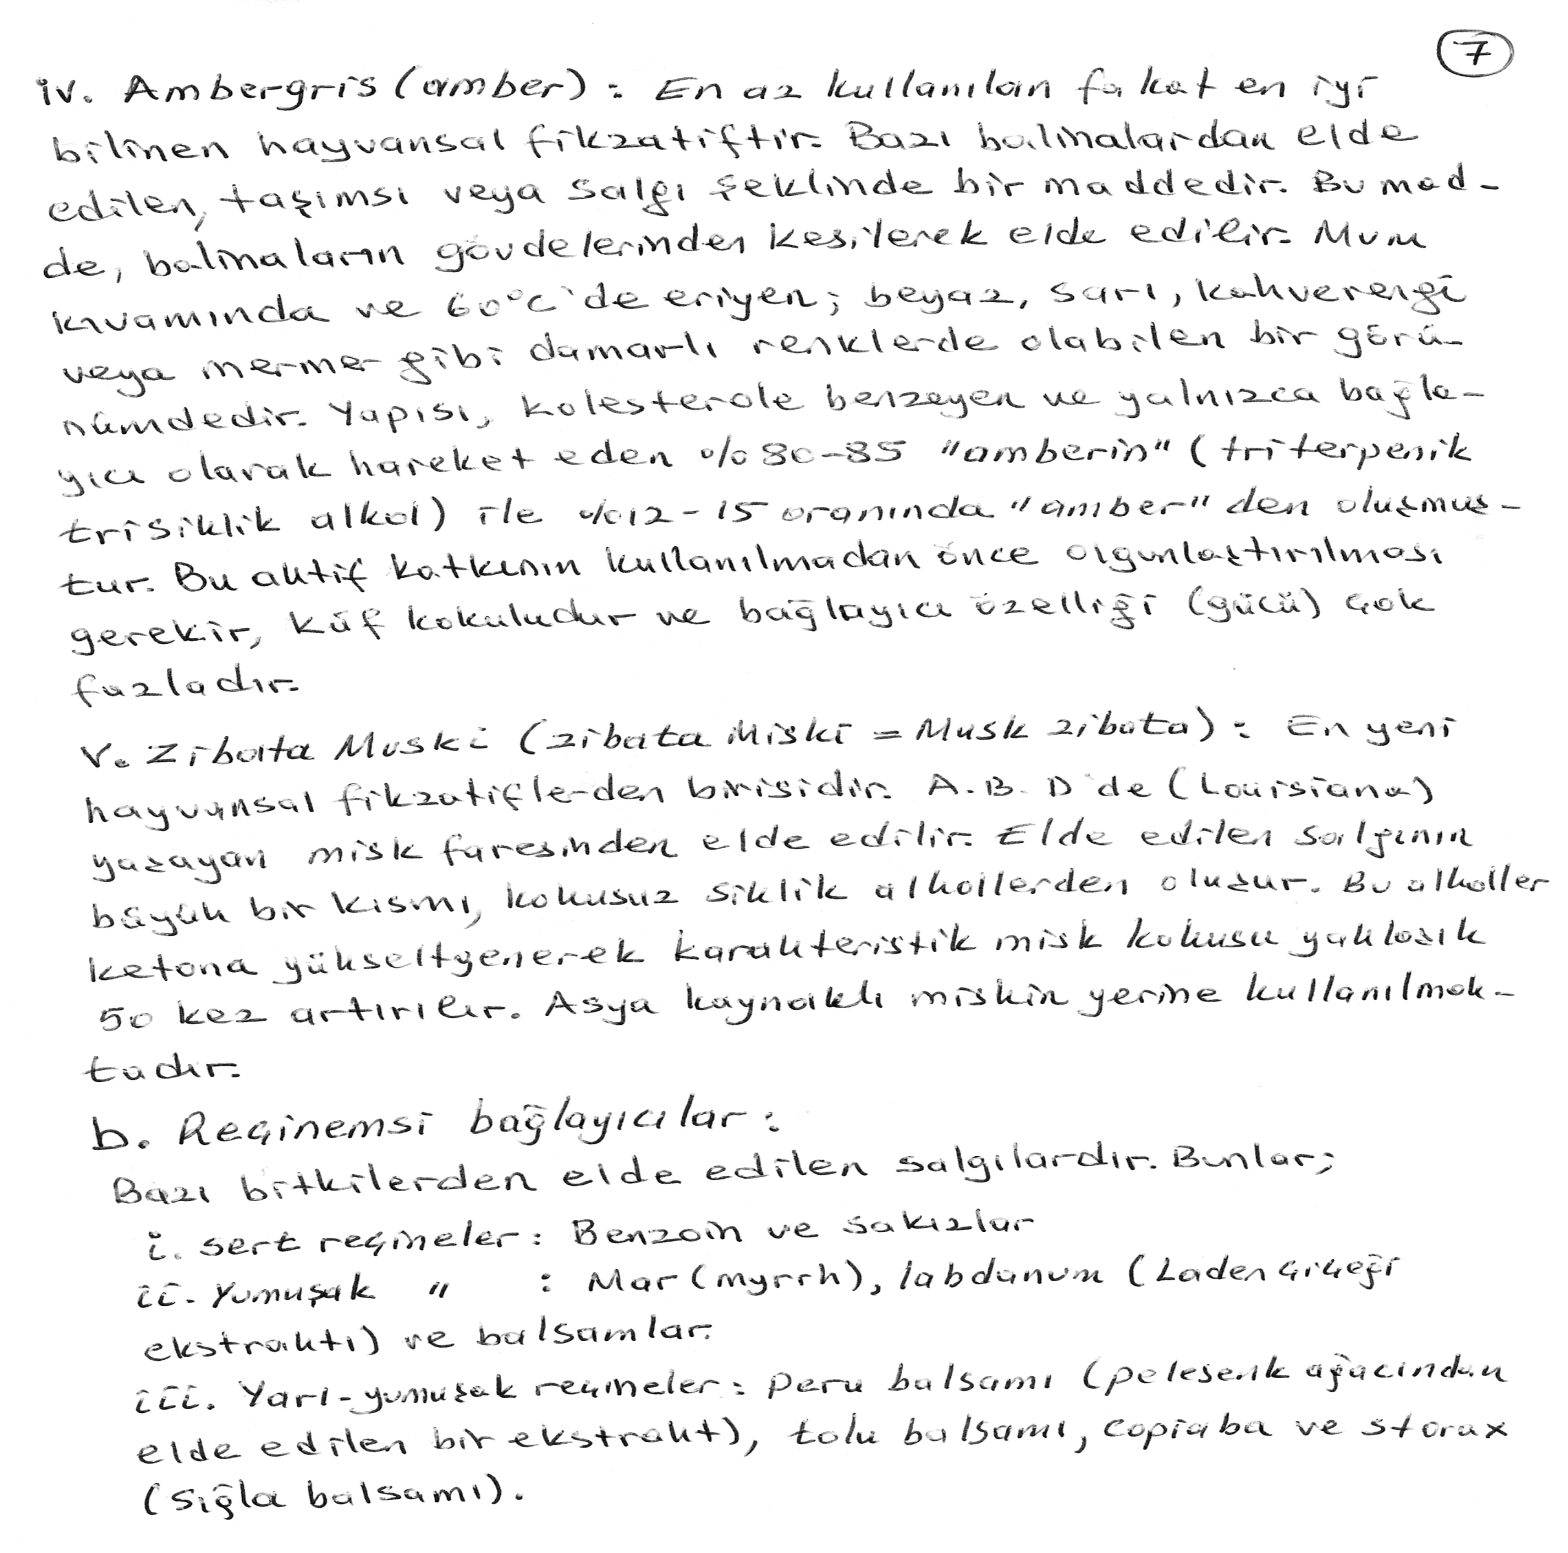 7
iv. Ambergris (amber) : En az kullanılan fakat en iyi
bilinen hayvansal fikzatiftir. Bazı balinalardan elde
edilen, taşımsı veya salgı şeklinde bir maddedir. Bu mad-
de, balinaların gövdelerinden kesilerek elde edilir. Mum
kıvamında ve 60°C'de eriyen; beyaz, sarı, kahverengi
veya mermer gibi damarlı renklerde olabilen bir görü-
nümdedir. Yapısı, kolesterole benzeyen ve yalnızca bağla-
yıcı olarak hareket eden %80-85 "amberin" (triterpenik
trisiklik alkol) ile %12-15 oranında "amber"den oluşmuş-
tur. Bu aktif katkının kullanılmadan önce olgunlaştırılması
gerekir, küf kokuludur ve bağlayıcı özelliği (gücü) çok
fazladır.
V. Zibata Muski (zibata Miski = Musk zibata) : En yeni
hayvansal fikzatiflerden birisidir. A.B.D'de (Louisiana)
yaşayan misk faresinden elde edilir. Elde edilen salgının
büyük bir kısmı, kokusuz siklik alkollerden oluşur. Bu alkoller
ketona yükseltgenerek karakteristik misk kokusu yaklaşık
50 kez artırılır. Asya kaynaklı miskin yerine kullanılmak-
tadır.
b. Reçinemsi bağlayıcılar :
Bazı bitkilerden elde edilen salgılardır. Bunlar;
i. sert reçineler : Benzoin ve sakızlar
ii. Yumuşak " : Mar (myrrh), labdanum (Laden çiçeği
ekstraktı) ve balsamlar.
iii. Yarı-yumuşak reçineler : Peru balsamı (pelesenk ağacından
elde edilen bir ekstrakt), tolu balsamı, copiaba ve storax
(Sığla balsamı).